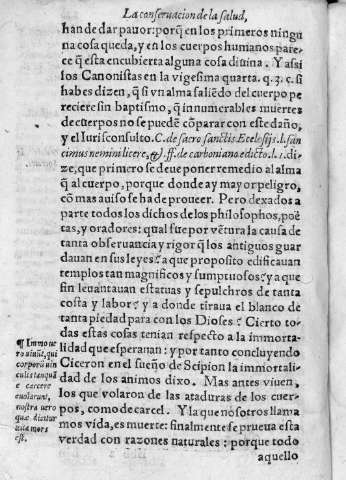 La conseruacion de la salud,
han de dar pauor: porq̃ en los primeros ningu
na cosa queda, y en los cuerpos humanos pare-
ce q̃ esta encubierta alguna cosa diuina. Y assi
los Canonistas en la vigesima quarta. q. 3. c. si
habes dizen, q̃ si vn alma saliẽdo del cuerpo pe
reciere sin baptismo, q̃ innumerables muertes
de cuerpos no se puedẽ cõparar con este daño,
y el Iurisconsulto. C. de sacro sanctis Ecclesijs. l. san
cimus nemini licere, &. ff. de carboniano edicto. l. 1. di-
ze, que primero se deue poner remedio al alma
q̃ al cuerpo, porque donde ay mayor peligro,
cõ mas auiso se ha de proueer. Pero dexados a
parte todos los dichos de los philosophos, poë
tas, y oradores: qual fue por vẽtura la causa de
tanta obseruancia y rigor q̃ los antiguos guar
dauan en sus leyes? a que proposito edificauan
templos tan magnificos y sumptuosos? y a que
fin leuantauan estatuas y sepulchros de tanta
costa y labor? y a donde tiraua el blanco de
tanta piedad para con los Dioses? Cierto to-
das estas cosas tenian respecto a la immorta-
lidad que esperauan: y por tanto concluyendo
Ciceron en el sueño de Scipion la immortali-
dad de los animos dixo. Mas antes viuen,
los que volaron de las ataduras de los cuer-
pos, como de carcel. Y la que nosotros llama
mos vida, es muerte: finalmente se prueua esta
verdad con razones naturales: porque todo
aquello
¶ Immo ue
ro uiuũt, qui
corporũ uin
culis tanquã
e carcere
euolarunt,
nostra uero
quæ dicitur
uita mors
est.